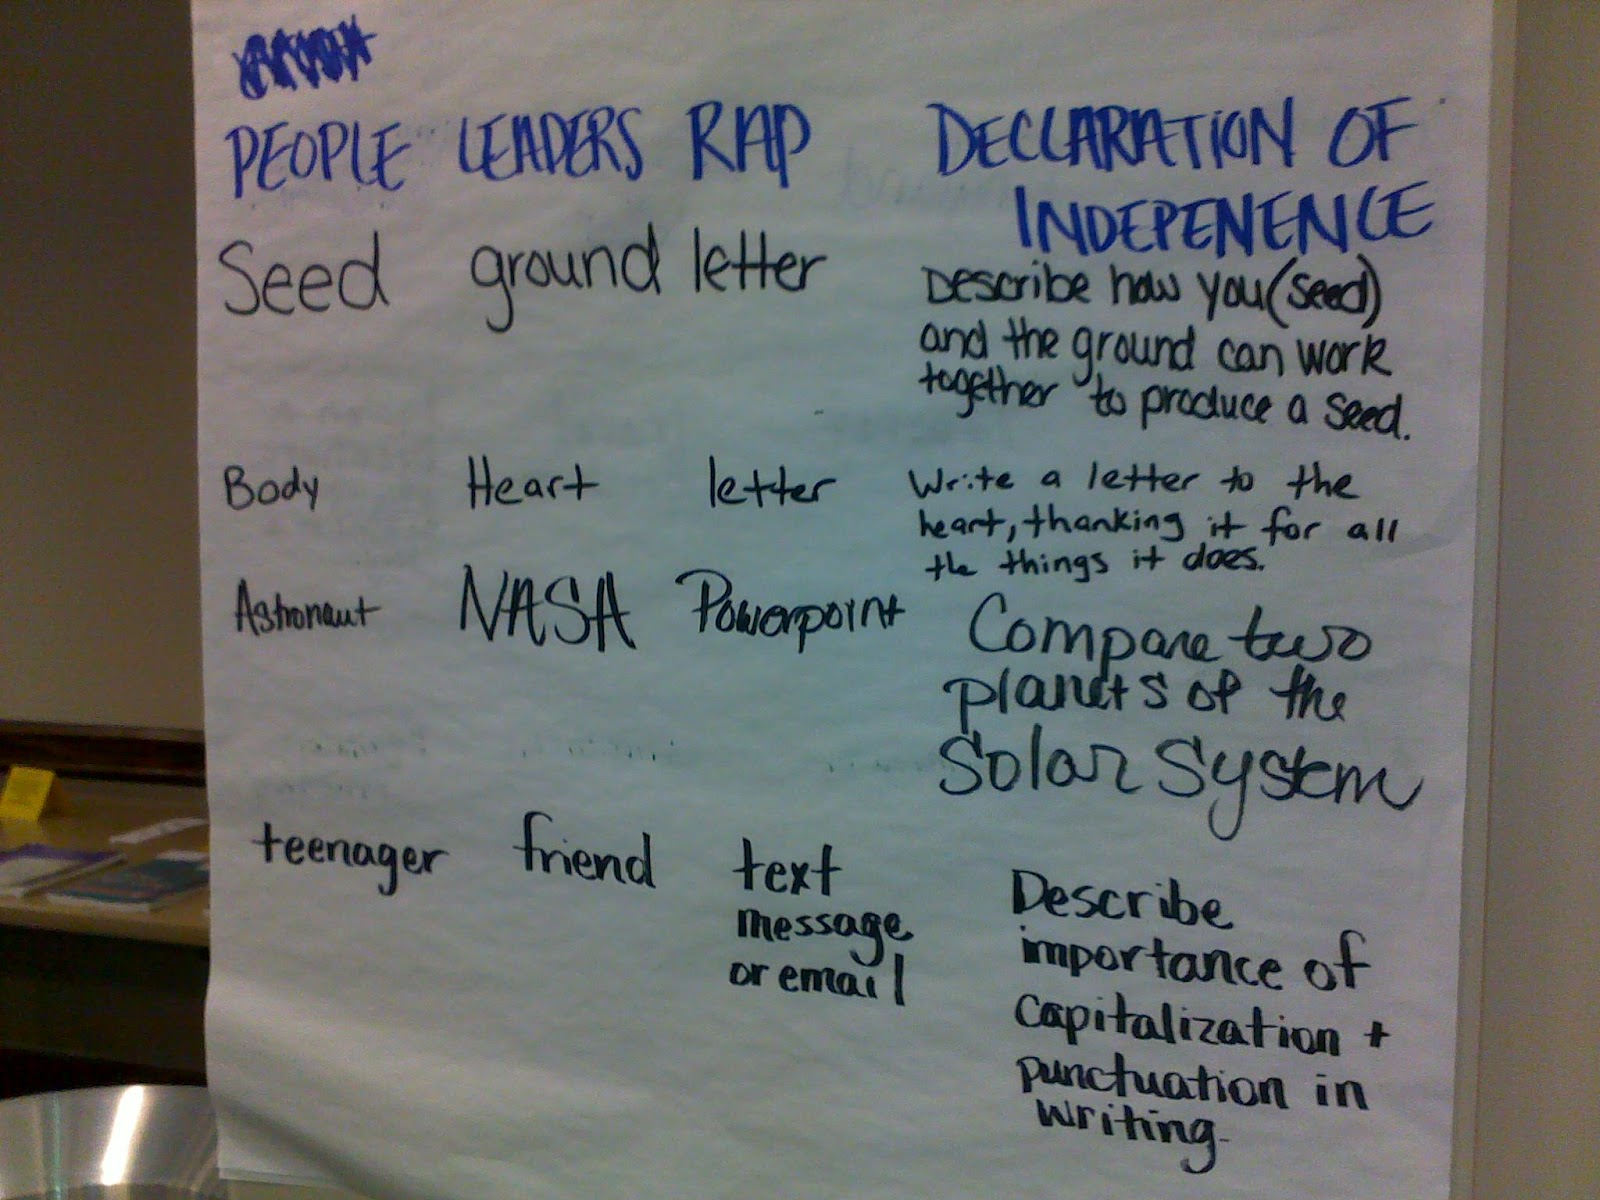 PEOPLE LEADERS RAP DECLARATION OF
INDEPENENCE
Seed ground letter Describe how you (seed)
and the ground can work
together to produce a seed.
Body Heart letter Write a letter to the
heart, thanking it for all
the things it does.
Astronaut NASA Powerpoint Compare two
planets of the
Solar System
teenager friend text
message
or email
Describe
importance of
capitalization +
punctuation in
writing.